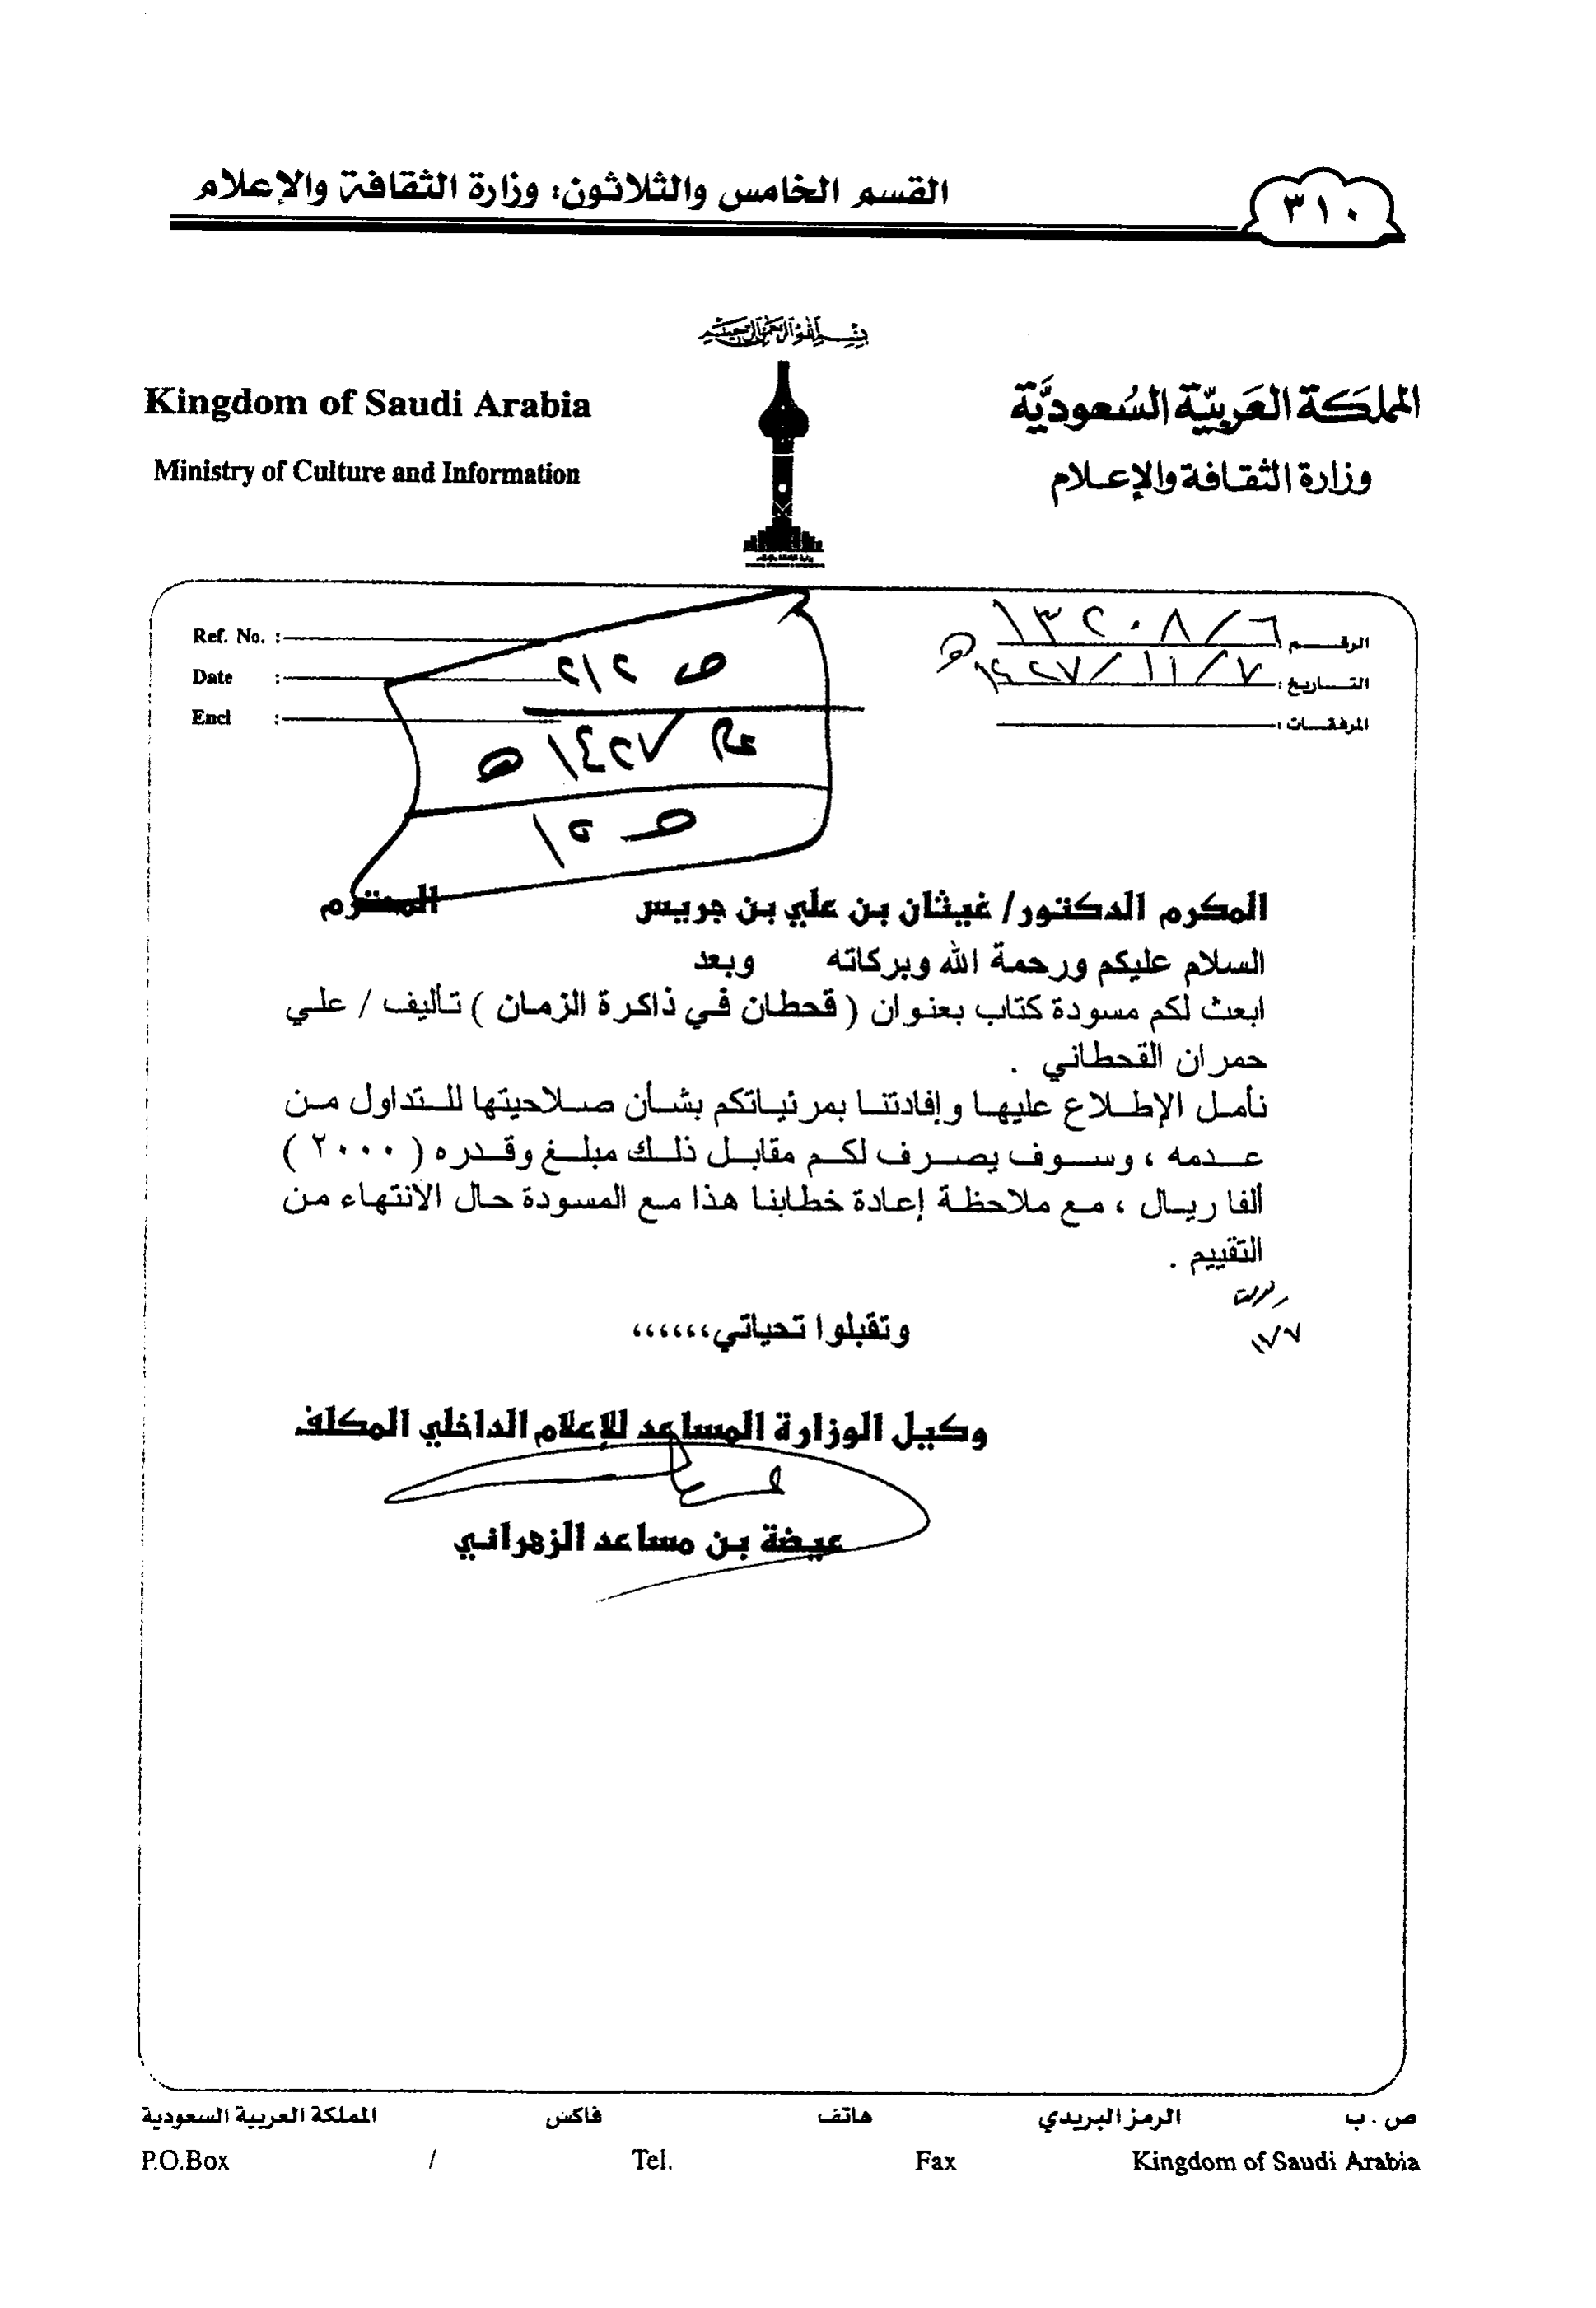 القسم الخامس والثلاثون: وزارة الثقافة والإعلام
٣١٠
بسم الله الرحمن الرحيم
Kingdom of Saudi Arabia
المملكة العربية السعودية
Ministry of Culture and Information
وزارة الثقافة والإعلام
الرقم ١٣٢٠٨/٦
التاريخ: ١٤٢٧/١١/٧ هـ
المرفقات:
Ref. No. :
Date :
Encl :
ص ٢١٢
١٤٢٧ هـ
المكرم الدكتور/ غيثان بن علي بن جريس المحترم
السلام عليكم ورحمة الله وبركاته وبعد
ابعث لكم مسودة كتاب بعنوان ( قحطان في ذاكرة الزمان ) تأليف / علي
حمران القحطاني .
نأمل الإطلاع عليها وإفادتنا بمرئياتكم بشأن صلاحيتها للتداول من
عدمه ، وسوف يصرف لكم مقابل ذلك مبلغ وقدره ( ٢٠٠٠ )
ألفا ريال ، مع ملاحظة إعادة خطابنا هذا مع المسودة حال الانتهاء من
التقييم .
وتقبلوا تحياتي،،،،،،
وكيل الوزارة المساعد للإعلام الداخلي المكلف
عيضة بن مساعد الزهراني
ص . ب الرمز البريدي هاتف فاكس المملكة العربية السعودية
P.O.Box / Tel. Fax Kingdom of Saudi Arabia